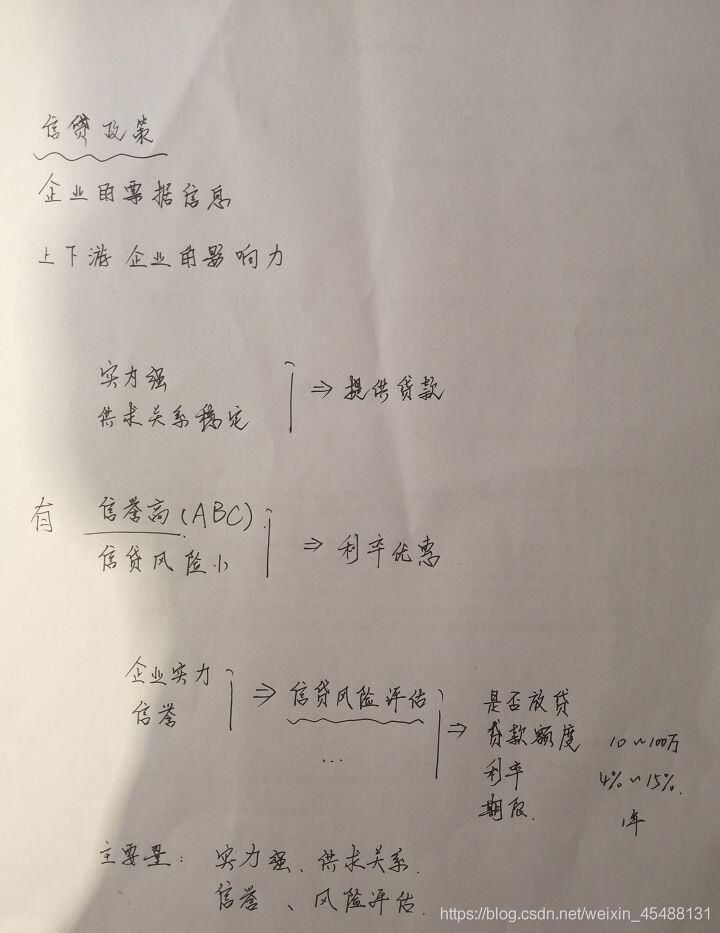 信贷政策
企业的票据信息
上下游企业的影响力
实力强
供求关系稳定
⇒ 提供贷款
有 信誉高(ABC)
信贷风险小
⇒ 利率优惠
企业实力
信誉
⇒ 信贷风险评估
...
⇒ 是否放贷
贷款额度 10~100万
利率 4%~15%.
期限. 1年
主要量: 实力强、供求关系.
信誉、风险评估.
https://blog.csdn.net/weixin_45488131